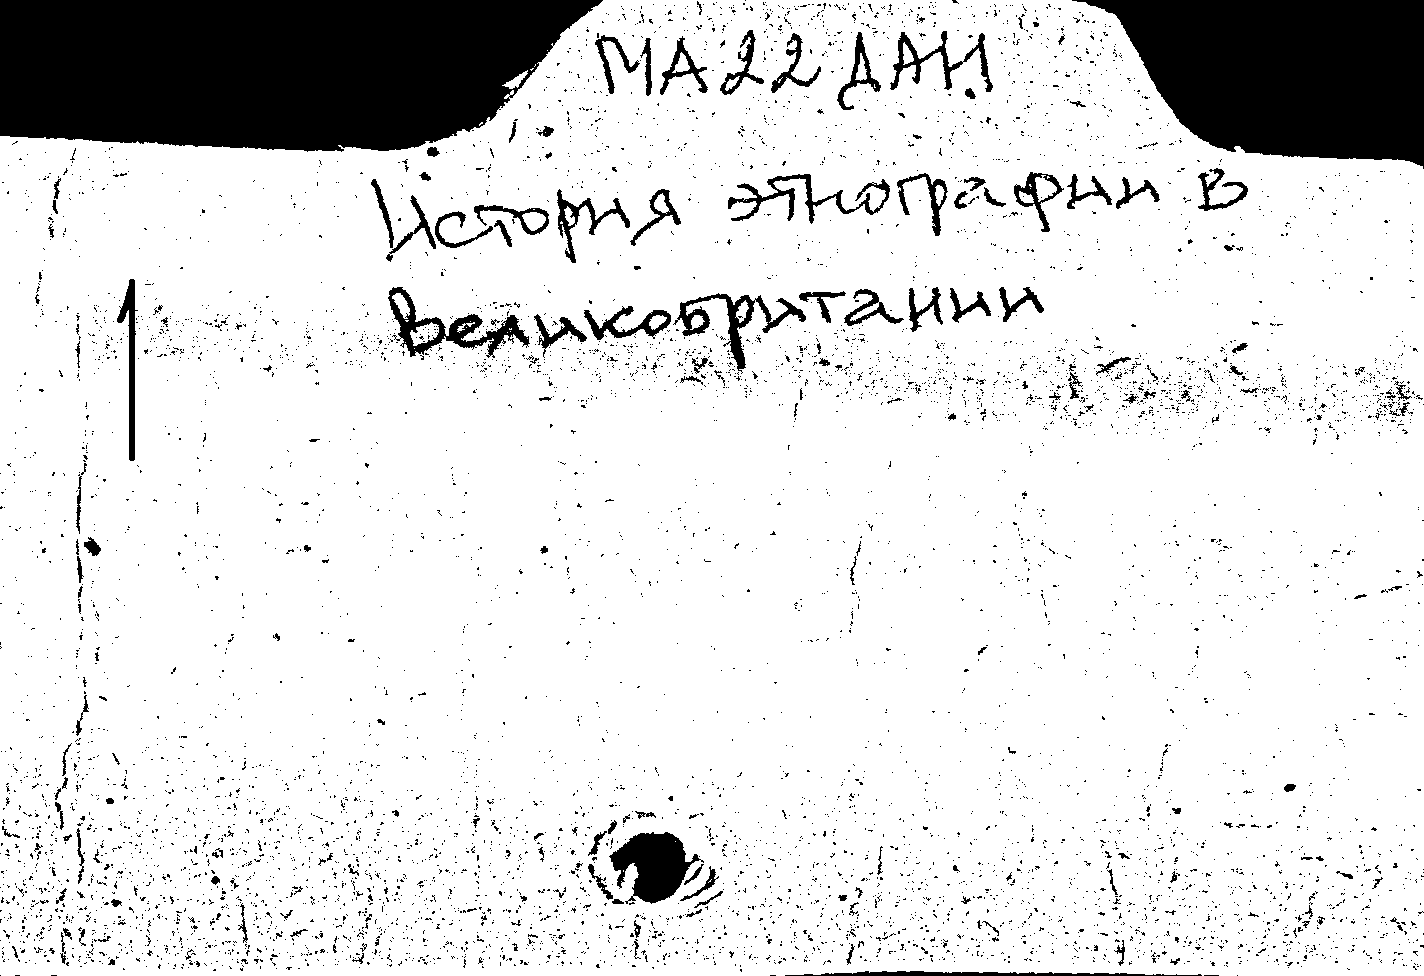 МА 22 ДАН
История этнографии в
Великобритании